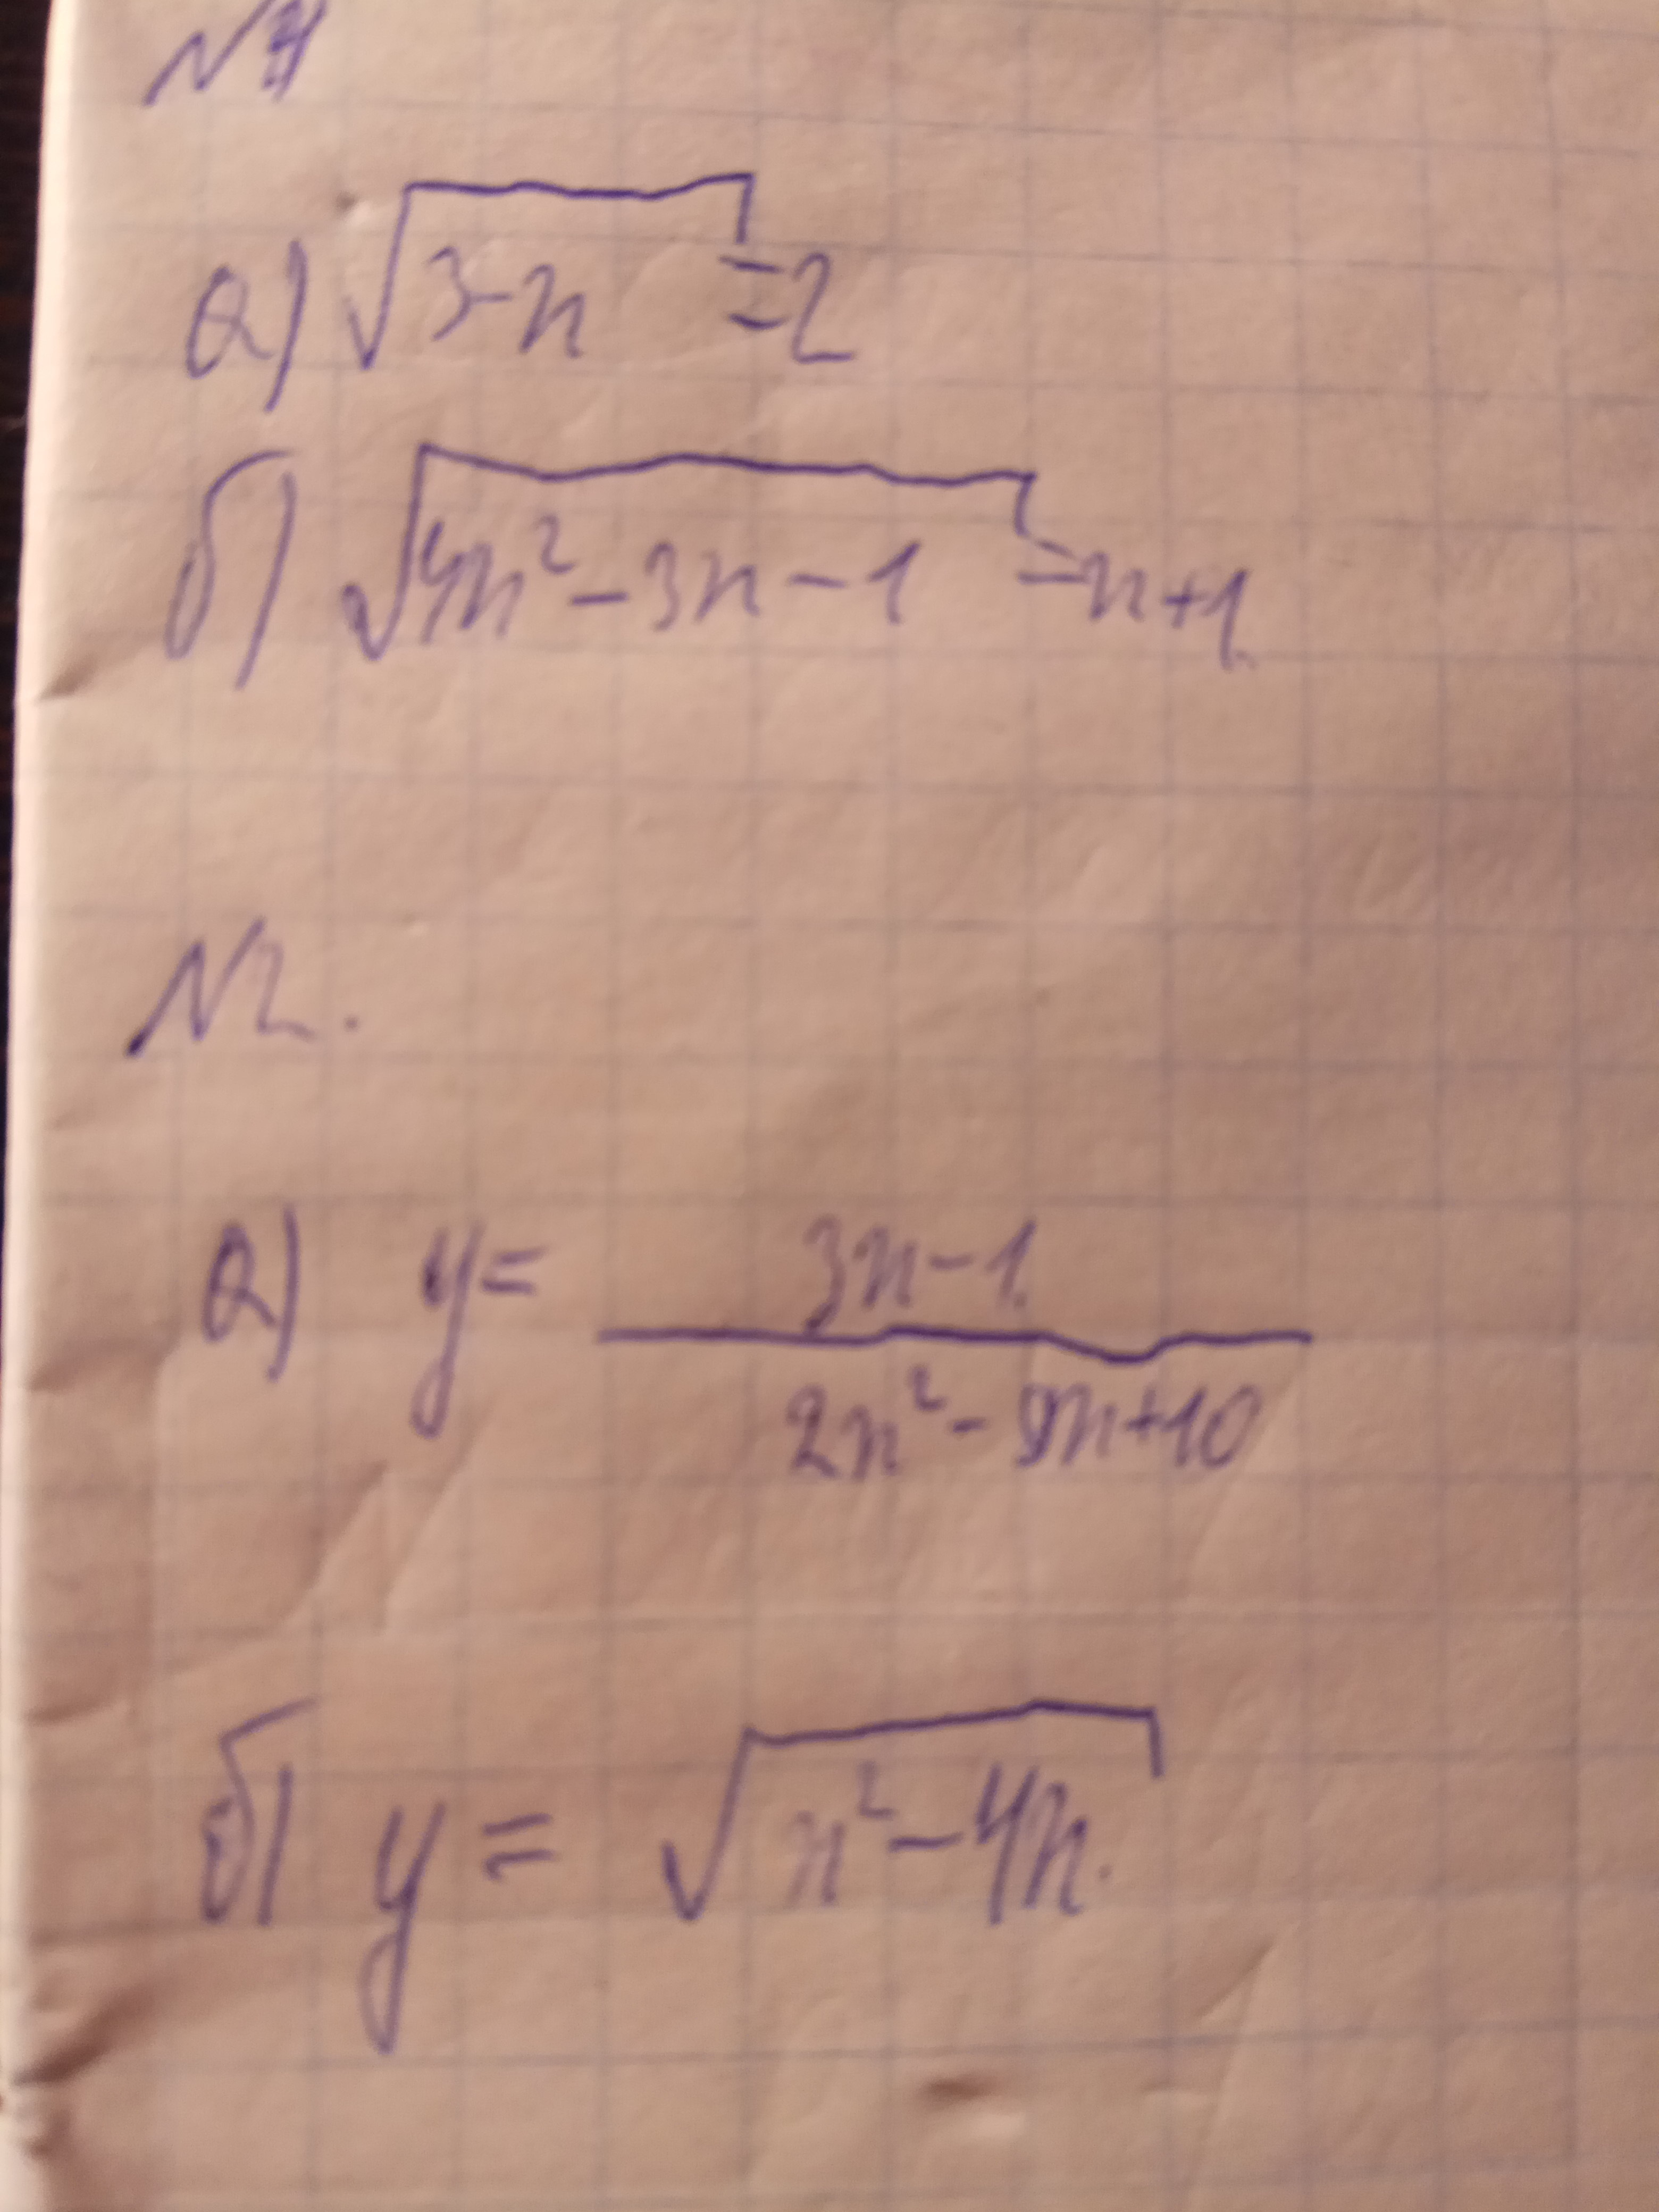 №1
а) √3-x = 2
б) √4x² - 3x - 1 = x+1.
№2.
а) y = 3x-1.
2x² - 9x+10
б) y = √x² - 4x.